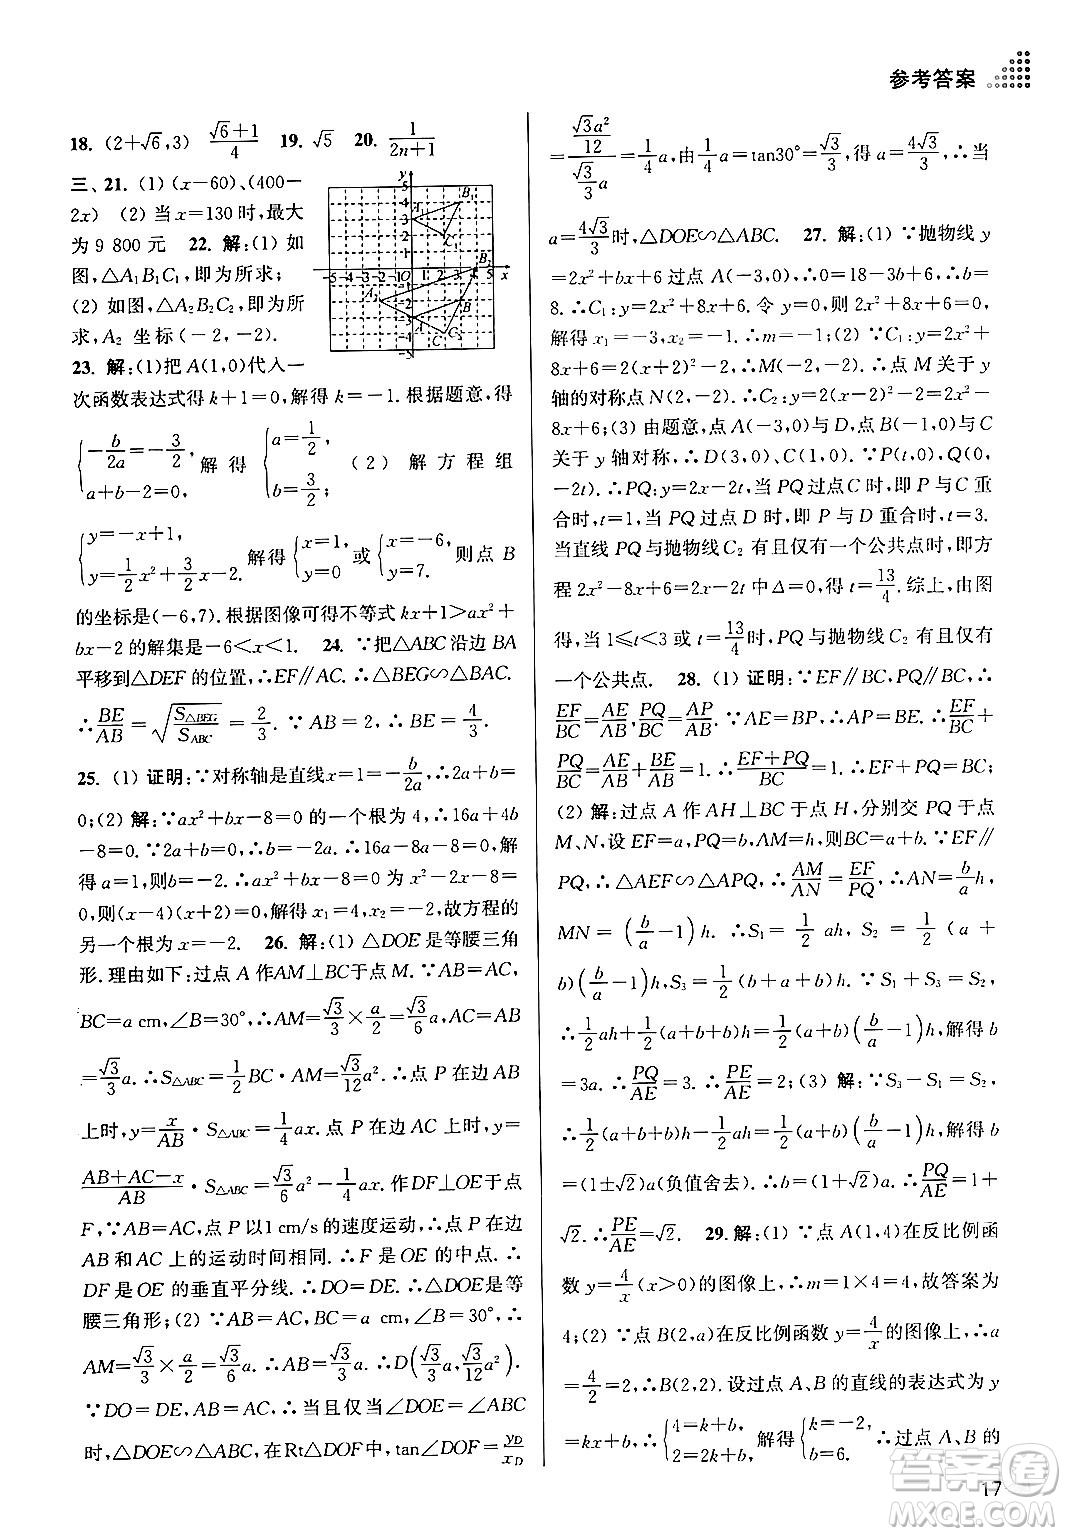 参考答案
18. (2+√6,3) (√6+1)/4 19. √5 20. 1/(2n+1)
三、21. (1) (x-60)、(400-
2x) (2) 当 x=130 时,最大
为 9 800 元 22. 解:(1) 如
图,△A₁B₁C₁,即为所求;
(2) 如图,△A₂B₂C₂,即为所
求,A₂ 坐标(-2,-2).
23. 解:(1)把 A(1,0)代入一
次函数表达式得 k+1=0,解得 k=-1. 根据题意,得
{-b/2a=-3/2, a+b-2=0, 解得 {a=1/2, b=3/2; (2) 解方程组
{y=-x+1, y=1/2x²+3/2x-2. 解得{x=1, y=0 或{x=-6, y=7. 则点 B
的坐标是(-6,7). 根据图像可得不等式 kx+1>ax²+
bx-2 的解集是-6<x<1. 24. ∵把△ABC 沿边 BA
平移到△DEF 的位置,∴EF∥AC. ∴△BEG∽△BAC.
∴BE/AB=√(S△BEG/SABC)=2/3. ∵AB=2,∴BE=4/3.
25. (1) 证明:∵对称轴是直线x=1=-b/2a,∴2a+b=
0;(2) 解:∵ax²+bx-8=0 的一个根为 4,∴16a+4b
-8=0. ∵2a+b=0,∴b=-2a. ∴16a-8a-8=0,解
得 a=1,则b=-2. ∴ax²+bx-8=0 为 x²-2x-8=
0,则(x-4)(x+2)=0,解得 x₁=4,x₂=-2,故方程的
另一个根为 x=-2. 26. 解:(1) △DOE 是等腰三角
形. 理由如下:过点 A 作AM⊥BC于点 M. ∵AB=AC,
BC=a cm,∠B=30°,∴AM=√3/3×a/2=√3/6a,AB=AC
=√3/3a. ∴S△ABC=1/2BC·AM=√3/12a². ∴点 P 在边 AB
上时,y=x/AB·S△ABC=1/4ax. 点 P 在边AC 上时,y=
(AB+AC-x)/AB·S△ABC=√3/6a²-1/4ax. 作DF⊥OE于点
F,∵AB=AC,点 P 以1 cm/s 的速度运动,∴点 P 在边
AB 和 AC 上的运动时间相同. ∴F 是 OE 的中点. ∴
DF 是 OE 的垂直平分线. ∴DO=DE. ∴△DOE是等
腰三角形;(2) ∵AB=AC,BC=a cm,∠B=30°,∴
AM=√3/3×a/2=√3/6a. ∴AB=√3/3a. ∴D(√3/3a,√3/12a²).
∵DO=DE,AB=AC,∴当且仅当∠DOE=∠ABC
时,△DOE∽△ABC,在 Rt△DOF中,tan∠DOF=yD/xD
=(√3a²/12)/(√3/3a)=1/4a,由1/4a=tan30°=√3/3,得 a=4√3/3,∴当
a=4√3/3时,△DOE∽△ABC. 27. 解:(1) ∵抛物线 y
=2x²+bx+6 过点 A(-3,0),∴0=18-3b+6. ∴b=
8. ∴C₁:y=2x²+8x+6. 令 y=0,则 2x²+8x+6=0.
解得 x₁=-3,x₂=-1. ∴m=-1;(2) ∵C₁:y=2x²+
8x+6=2(x+2)²-2,∴M(-2,-2). ∴点 M 关于 y
轴的对称点 N(2,-2). ∴C₂:y=2(x-2)²-2=2x²-
8x+6;(3) 由题意,点 A(-3,0)与 D,点 B(-1,0)与 C
关于 y 轴对称,∴D(3,0)、C(1,0). ∵P(t,0),Q(0,
-2t). ∴PQ:y=2x-2t,当 PQ过点C 时,即 P 与 C 重
合时,t=1,当 PQ 过点 D 时,即 P 与 D 重合时,t=3.
当直线 PQ 与抛物线 C₂ 有且只有一个公共点时,即方
程 2x²-8x+6=2x-2t 中 Δ=0,得 t=13/4. 综上,由图
得,当 1≤t<3 或 t=13/4时,PQ 与抛物线 C₂ 有且仅有
一个公共点. 28. (1) 证明:∵EF∥BC,PQ∥BC,∴
EF/BC=AE/AB,PQ/BC=AP/AB. ∵AE=BP,∴AP=BE. ∴EF/BC+
PQ/BC=AE/AB+BE/AB=1. ∴(EF+PQ)/BC=1. ∴EF+PQ=BC;
(2) 解:过点 A 作 AH⊥BC 于点 H,分别交 PQ 于点
M、N,设 EF=a,PQ=b,AM=h,则BC=a+b. ∵EF∥
PQ,∴△AEF∽△APQ. ∴AM/AN=EF/PQ. ∴AN=b/a h,
MN=(b/a-1)h. ∴S₁=1/2 ah, S₂=1/2(a+
b)(b/a-1)h,S₃=1/2(a+b+b)h. ∵S₁+S₃=S₂,
∴1/2ah+1/2(a+b+b)h=1/2(a+b)(b/a-1)h,解得 b
=3a. ∴PQ/AE=3. ∴PE/AE=2;(3) 解:∵S₃-S₁=S₂,
∴1/2(a+b+b)h-1/2ah=1/2(a+b)(b/a-1)h,解得 b
=(1±√2)a(负值舍去). ∴b=(1+√2)a. ∴PQ/AE=1+
√2. ∴PE/AE=√2. 29. 解:(1) ∵点 A(1,4)在反比例函
数 y=4/x(x>0)的图像上,∴m=1×4=4,故答案为
4;(2) ∵点 B(2,a)在反比例函数 y=4/x的图像上,∴a
=4/2=2,∴B(2,2). 设过点 A、B 的直线的表达式为 y
=kx+b,∴{4=k+b, 2=2k+b, 解得{k=-2, b=6. ∴过点 A、B 的
17
答案圈
MXQE.COM